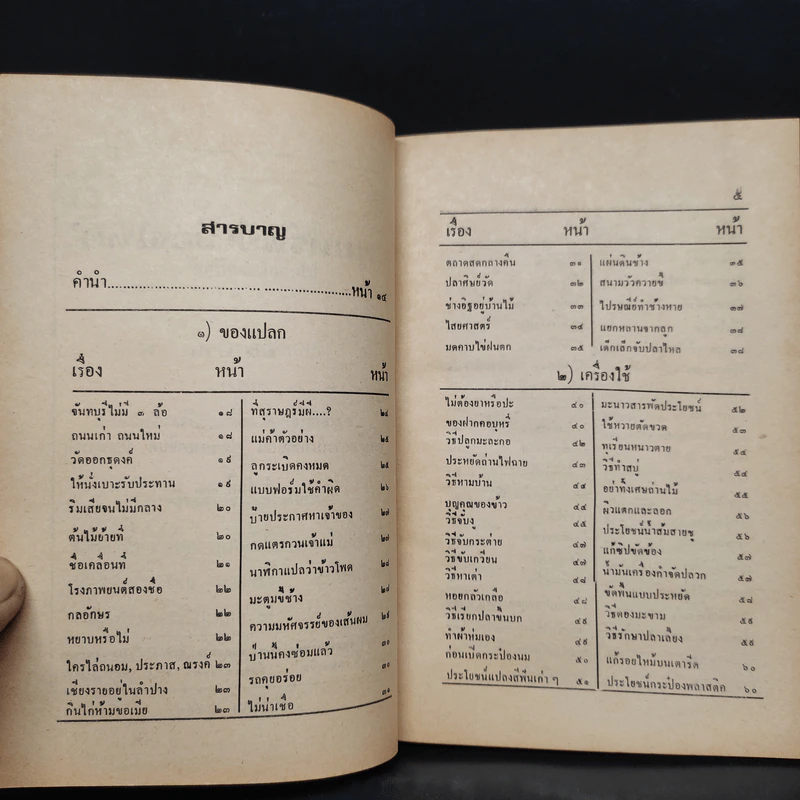 สารบาญ
คำนำ.......................................................หน้า ๑๔
๑) ของแปลก
เรื่อง หน้า หน้า
จันทบุรีไม่มี ๓ ล้อ ๑๘
ถนนเก่า ถนนใหม่ ๑๘
วัดออกธุดงค์ ๑๙
ให้นั่งเบาะรับประทาน ๑๙
ริมเสียจนไม่มีกลาง ๒๐
ต้นไม้ย้ายที่ ๒๐
ชื่อเคลื่อนที่ ๒๑
โรงภาพยนต์สองชื่อ ๒๒
กลอักษร ๒๒
หยาบหรือไม่ ๒๒
ใครไล่ถนอม, ประภาส, ณรงค์ ๒๓
เชียงรายอยู่ในลำปาง ๒๓
กินไก่ห้ามขอเมีย ๒๓
ที่สุราษฎร์มีผี....? ๒๔
แม่ค้าตัวอย่าง ๒๕
ลูกระเบิดคงหมด ๒๕
แบบฟอร์มใช้คำผิด ๒๖
ป้ายประกาศหาเจ้าของ ๒๗
กดแตรกวนเจ้าแม่ ๒๗
นาฬิกาแปลว่าข้าวโพด ๒๘
มะตูมขี้ช้าง ๒๘
ความมหัศจรรย์ของเส้นผม ๒๙
บ้านนี้คงซ่อมแล้ว ๓๐
รถคุยอร่อย ๓๐
ไม่น่าเชื่อ ๓๑
๕
เรื่อง หน้า หน้า
ตลาดสดกลางคืน ๓๑
ปลาศิษย์วัด ๓๒
ช่างอิฐอยู่บ้านไม้ ๓๓
ไสยศาสตร์ ๓๔
มดคาบไข่ฝนตก ๓๕
แผ่นดินช้าง ๓๕
สนามวัวควายขี้ ๓๖
ไปรษณีย์ทำช้างหาย ๓๗
แยกหลานจากลูก ๓๘
เด็กเล็กจับปลาไหล ๓๘
๒) เครื่องใช้
ไม่ต้องยาหรือปะ ๔๐
ของฝากคอบุหรี่ ๔๐
วิธีปลูกมะละกอ ๔๒
ประหยัดถ่านไฟฉาย ๔๓
วิธีหามบ้าน ๔๔
บุญคุณของข้าว ๔๔
วิธีจับงู ๔๕
วิธีจับกระต่าย ๔๗
วิธีขับเกวียน ๔๗
วิธีหาเต่า ๔๘
หอยกลัวเกลือ ๔๘
วิธีเรียกปลาขึ้นบก ๔๙
ทำผ้าห่มเอง ๔๙
ก่อนเปิดกระป๋องนม ๕๐
ประโยชน์แปลงสีฟันเก่า ๆ ๕๑
มะนาวสารพัดประโยชน์ ๕๒
ใช้หวายตัดขวด ๕๓
ทุเรียนหนาวตาย ๕๔
วิธีทำสบู่ ๕๔
อย่าทิ้งเศษถ่านไม้ ๕๕
ผิวแตกและลอก ๕๖
ประโยชน์น้ำส้มสายชู ๕๖
แก้ซิปขัดข้อง ๕๗
น้ำมันเครื่องกำจัดปลวก ๕๗
ขัดพื้นแบบประหยัด ๕๘
วิธีดองมะขาม ๕๙
วิธีรักษาปลาเลี้ยง ๕๙
แก้รอยไหม้บนเตารีด ๖๐
ประโยชน์กระป๋องพลาสติค ๖๐